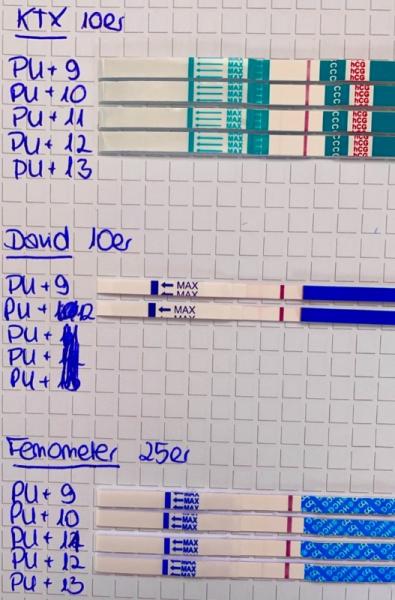 KTX 10er
PU + 9
PU + 10
PU + 11
PU + 12
PU + 13
MAX
MAX
MAX
MAX
hCG
hCG
hCG
hCG
David 10er
PU + 9
← MAX
PU + 12
← MAX
PU +
PU +
PU +
Femometer 25er
PU + 9
PU + 10
PU + 11
PU + 12
PU + 13
MAX
MAX
MAX
MAX